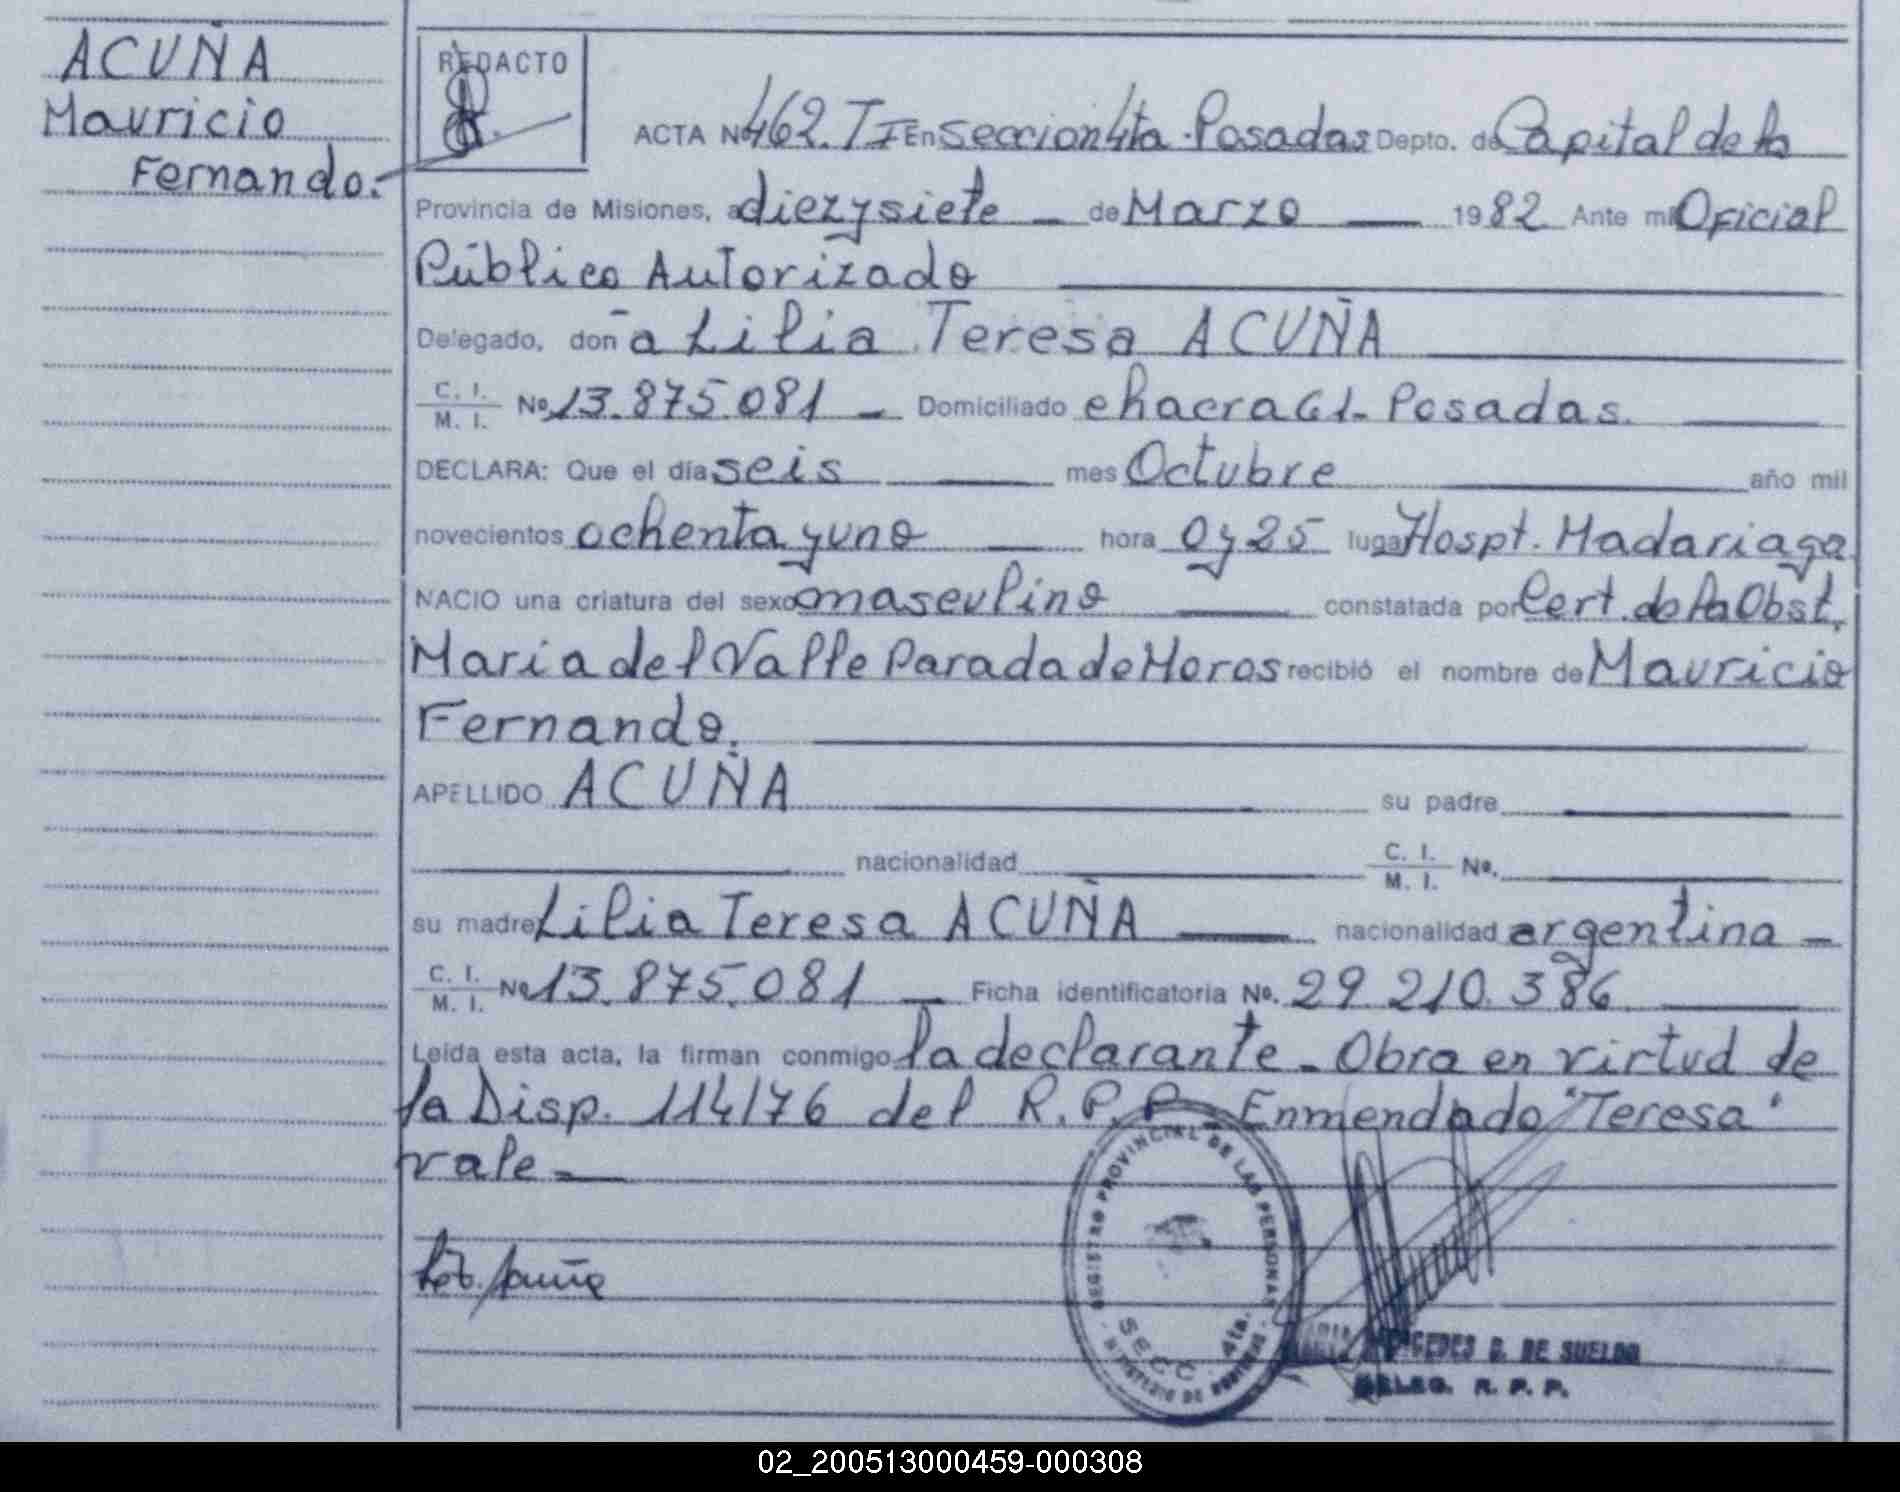 ACUÑA
Mauricio
Fernando.
REDACTO
ACTA Nº 462. TI En Seccion 4ta. Posadas Depto. de Capital de la
Provincia de Misiones, a diezysiete de Marzo 1982 Ante mi Oficial
Público Autorizado
Delegado, doña Lilia Teresa ACUÑA
C. I.
M. I. Nº 13.875.081 Domiciliado chacra 61- Posadas.
DECLARA: Que el día seis mes Octubre año mil
novecientos ochenta y uno hora 0 y 25 lugar Hospt. Madariaga
NACIO una criatura del sexo masculino constatada por Cert. de la Obst.
Maria del Valle Parada de Moros recibió el nombre de Mauricio
Fernando.
APELLIDO ACUÑA su padre
nacionalidad C. I.
M. I. Nº.
su madre Lilia Teresa ACUÑA nacionalidad argentina
C. I.
M. I. Nº 13.875.081 Ficha identificatoria Nº. 29.210.386
Leída esta acta, la firman conmigo la declarante - Obra en virtud de
la Disp. 114/76 del R.P.P. Enmendado "Teresa"
vale
REGISTRO PROVINCIAL DE LAS PERSONAS
SECC. 4ta.
MERCEDES G. DE SUELDO
DELEG. R. P. P.
02_200513000459-000308